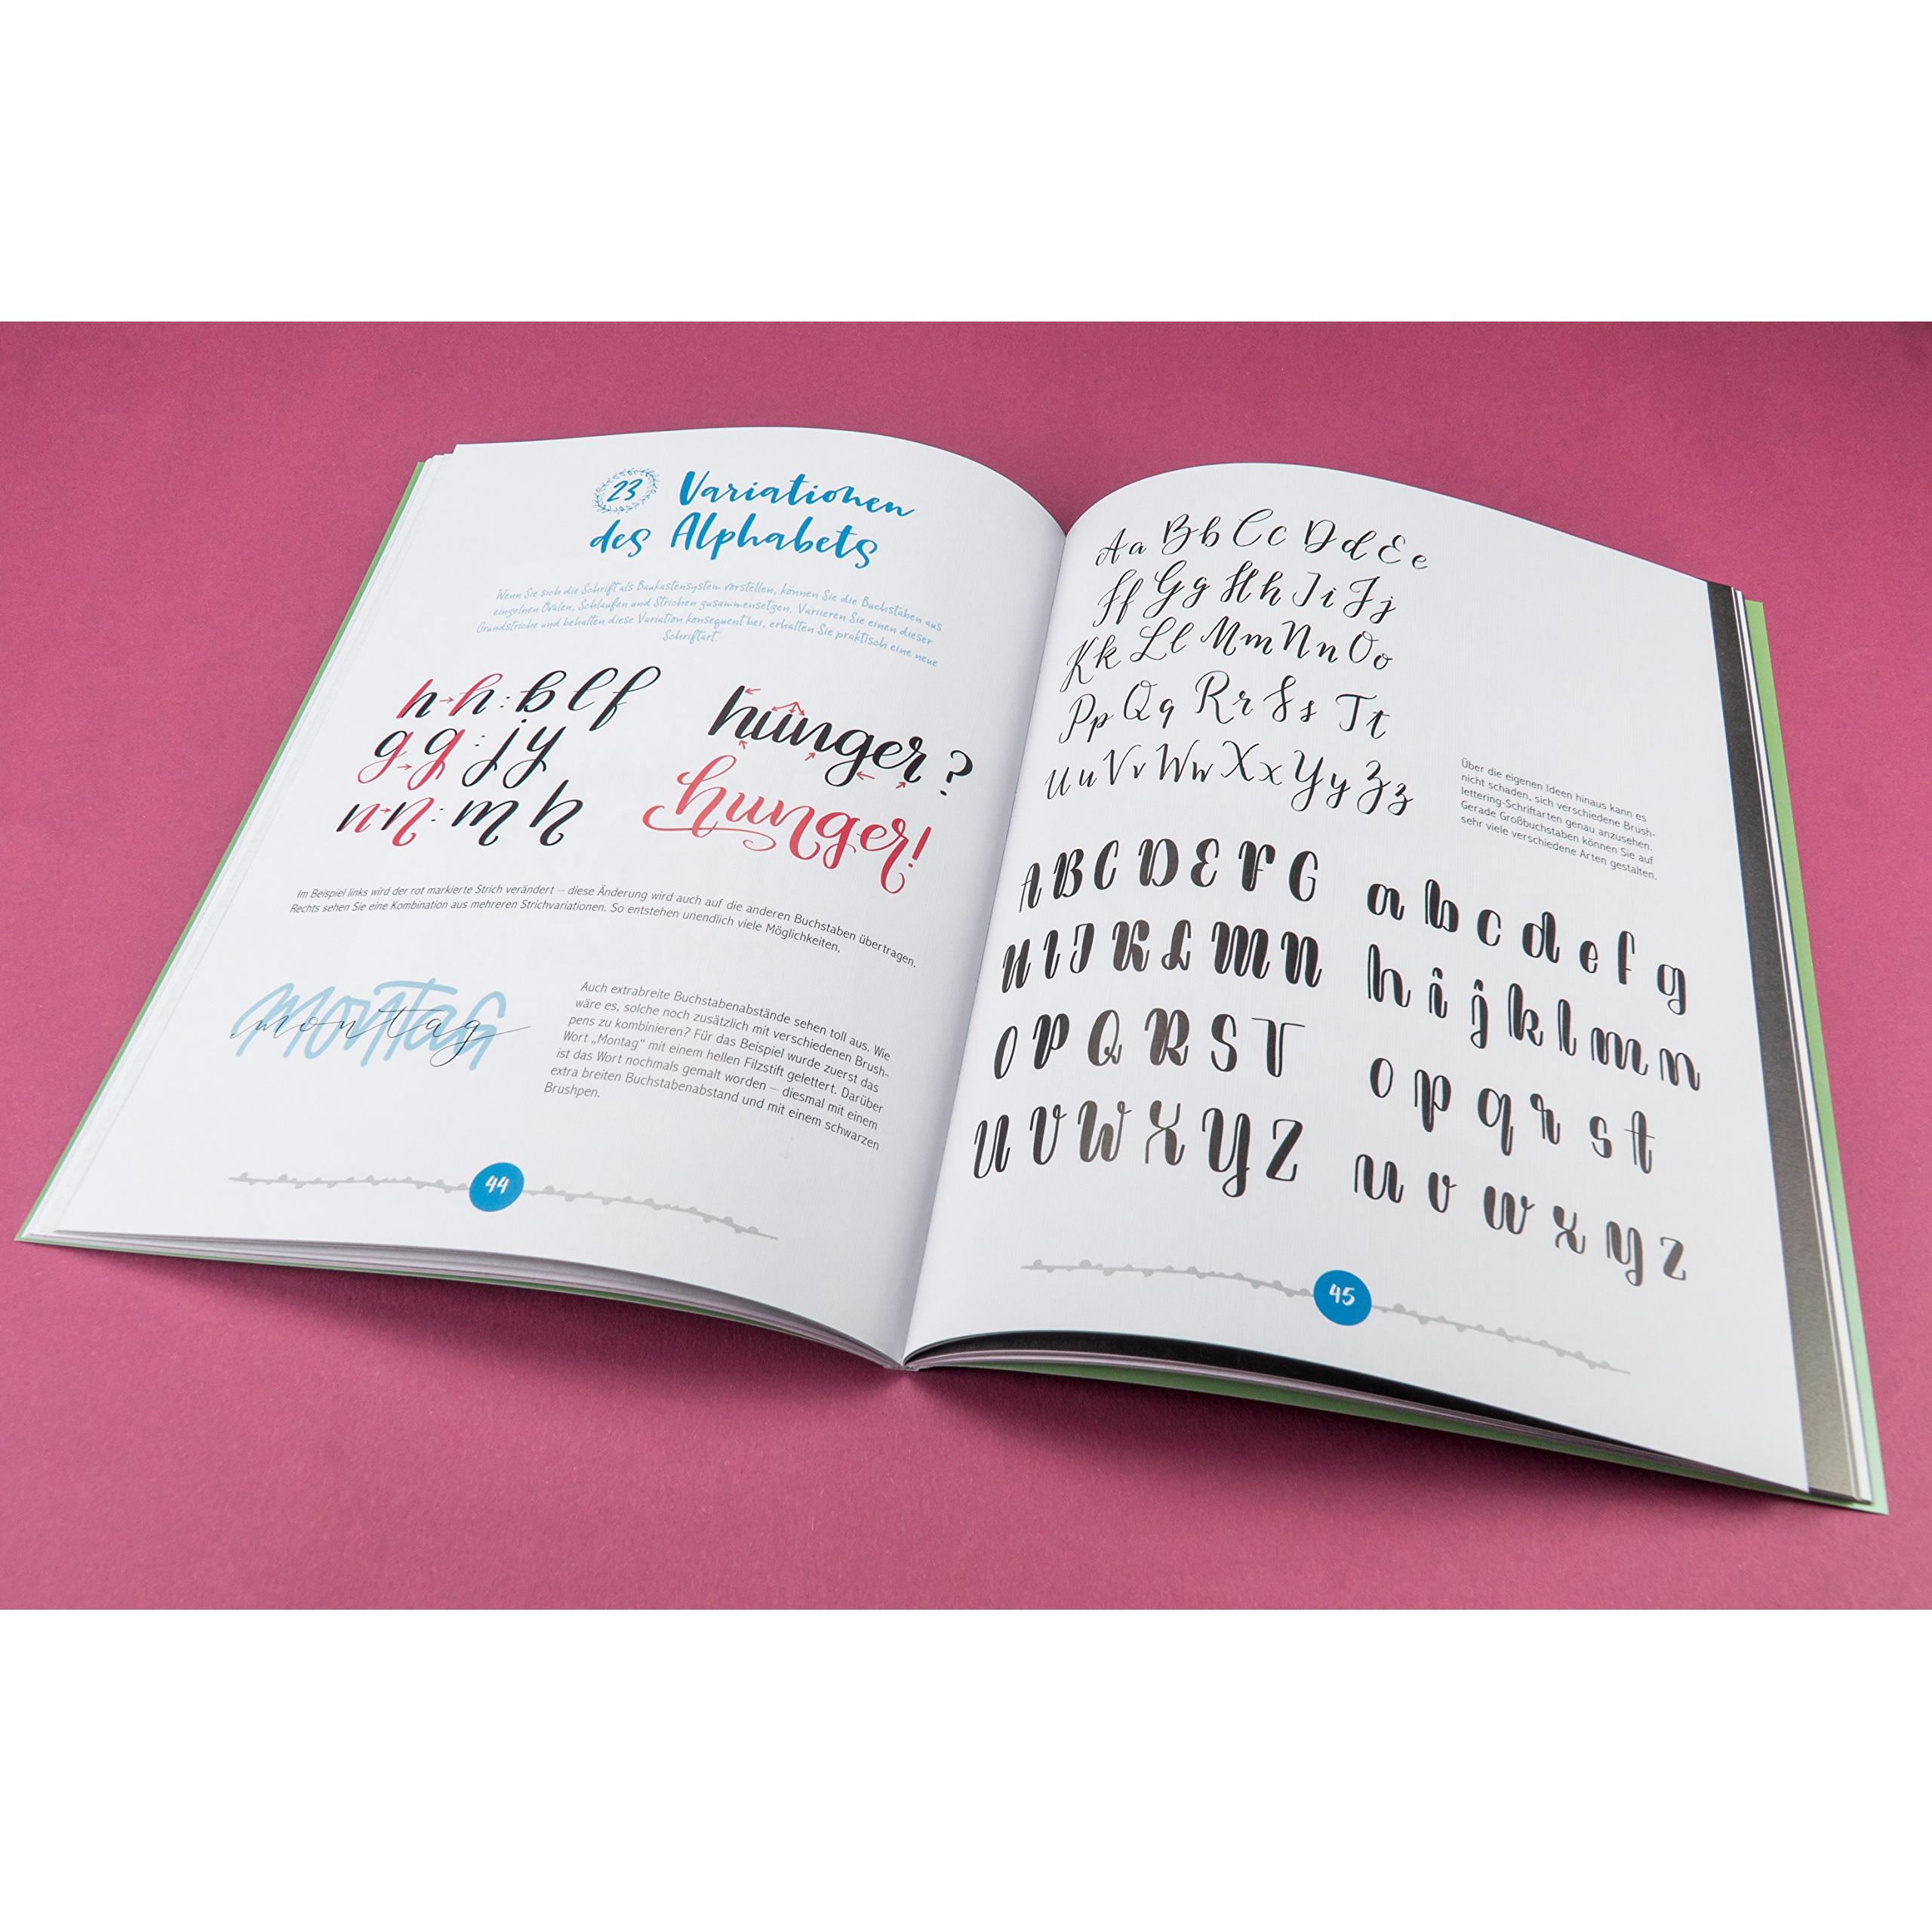 23 Variationen
des Alphabets
Wenn Sie sich die Schrift als Baukastensystem vorstellen, können Sie die Buchstaben aus
einzelnen Ovalen, Schlaufen und Strichen zusammensetzen. Variieren Sie einen dieser
Grundstriche und behalten diese Variation konsequent bei, erhalten Sie praktisch eine neue
Schriftart.
h → h : b l f
g → g : j y
n → n : m h
hunger ?
hunger!
Im Beispiel links wird der rot markierte Strich verändert – diese Änderung wird auch auf die anderen Buchstaben übertragen.
Rechts sehen Sie eine Kombination aus mehreren Strichvariationen. So entstehen unendlich viele Möglichkeiten.
montag
montag
Auch extrabreite Buchstabenabstände sehen toll aus. Wie
wäre es, solche noch zusätzlich mit verschiedenen Brush-
pens zu kombinieren? Für das Beispiel wurde zuerst das
Wort „Montag“ mit einem hellen Filzstift gelettert. Darüber
ist das Wort nochmals gemalt worden – diesmal mit einem
extra breiten Buchstabenabstand und mit einem schwarzen
Brushpen.
44
Aa Bb Cc Dd Ee
Ff Gg Hh Ii Jj
Kk Ll Mm Nn Oo
Pp Qq Rr Ss Tt
Uu Vv Ww Xx Yy Zz
Über die eigenen Ideen hinaus kann es
nicht schaden, sich verschiedene Brush-
lettering-Schriftarten genau anzusehen.
Gerade Großbuchstaben können Sie auf
sehr viele verschiedene Arten gestalten.
A B C D E F G
H I J K L M N
O P Q R S T
U V W X Y Z
a b c d e f g
h i j k l m n
o p q r s t
u v w x y z
45